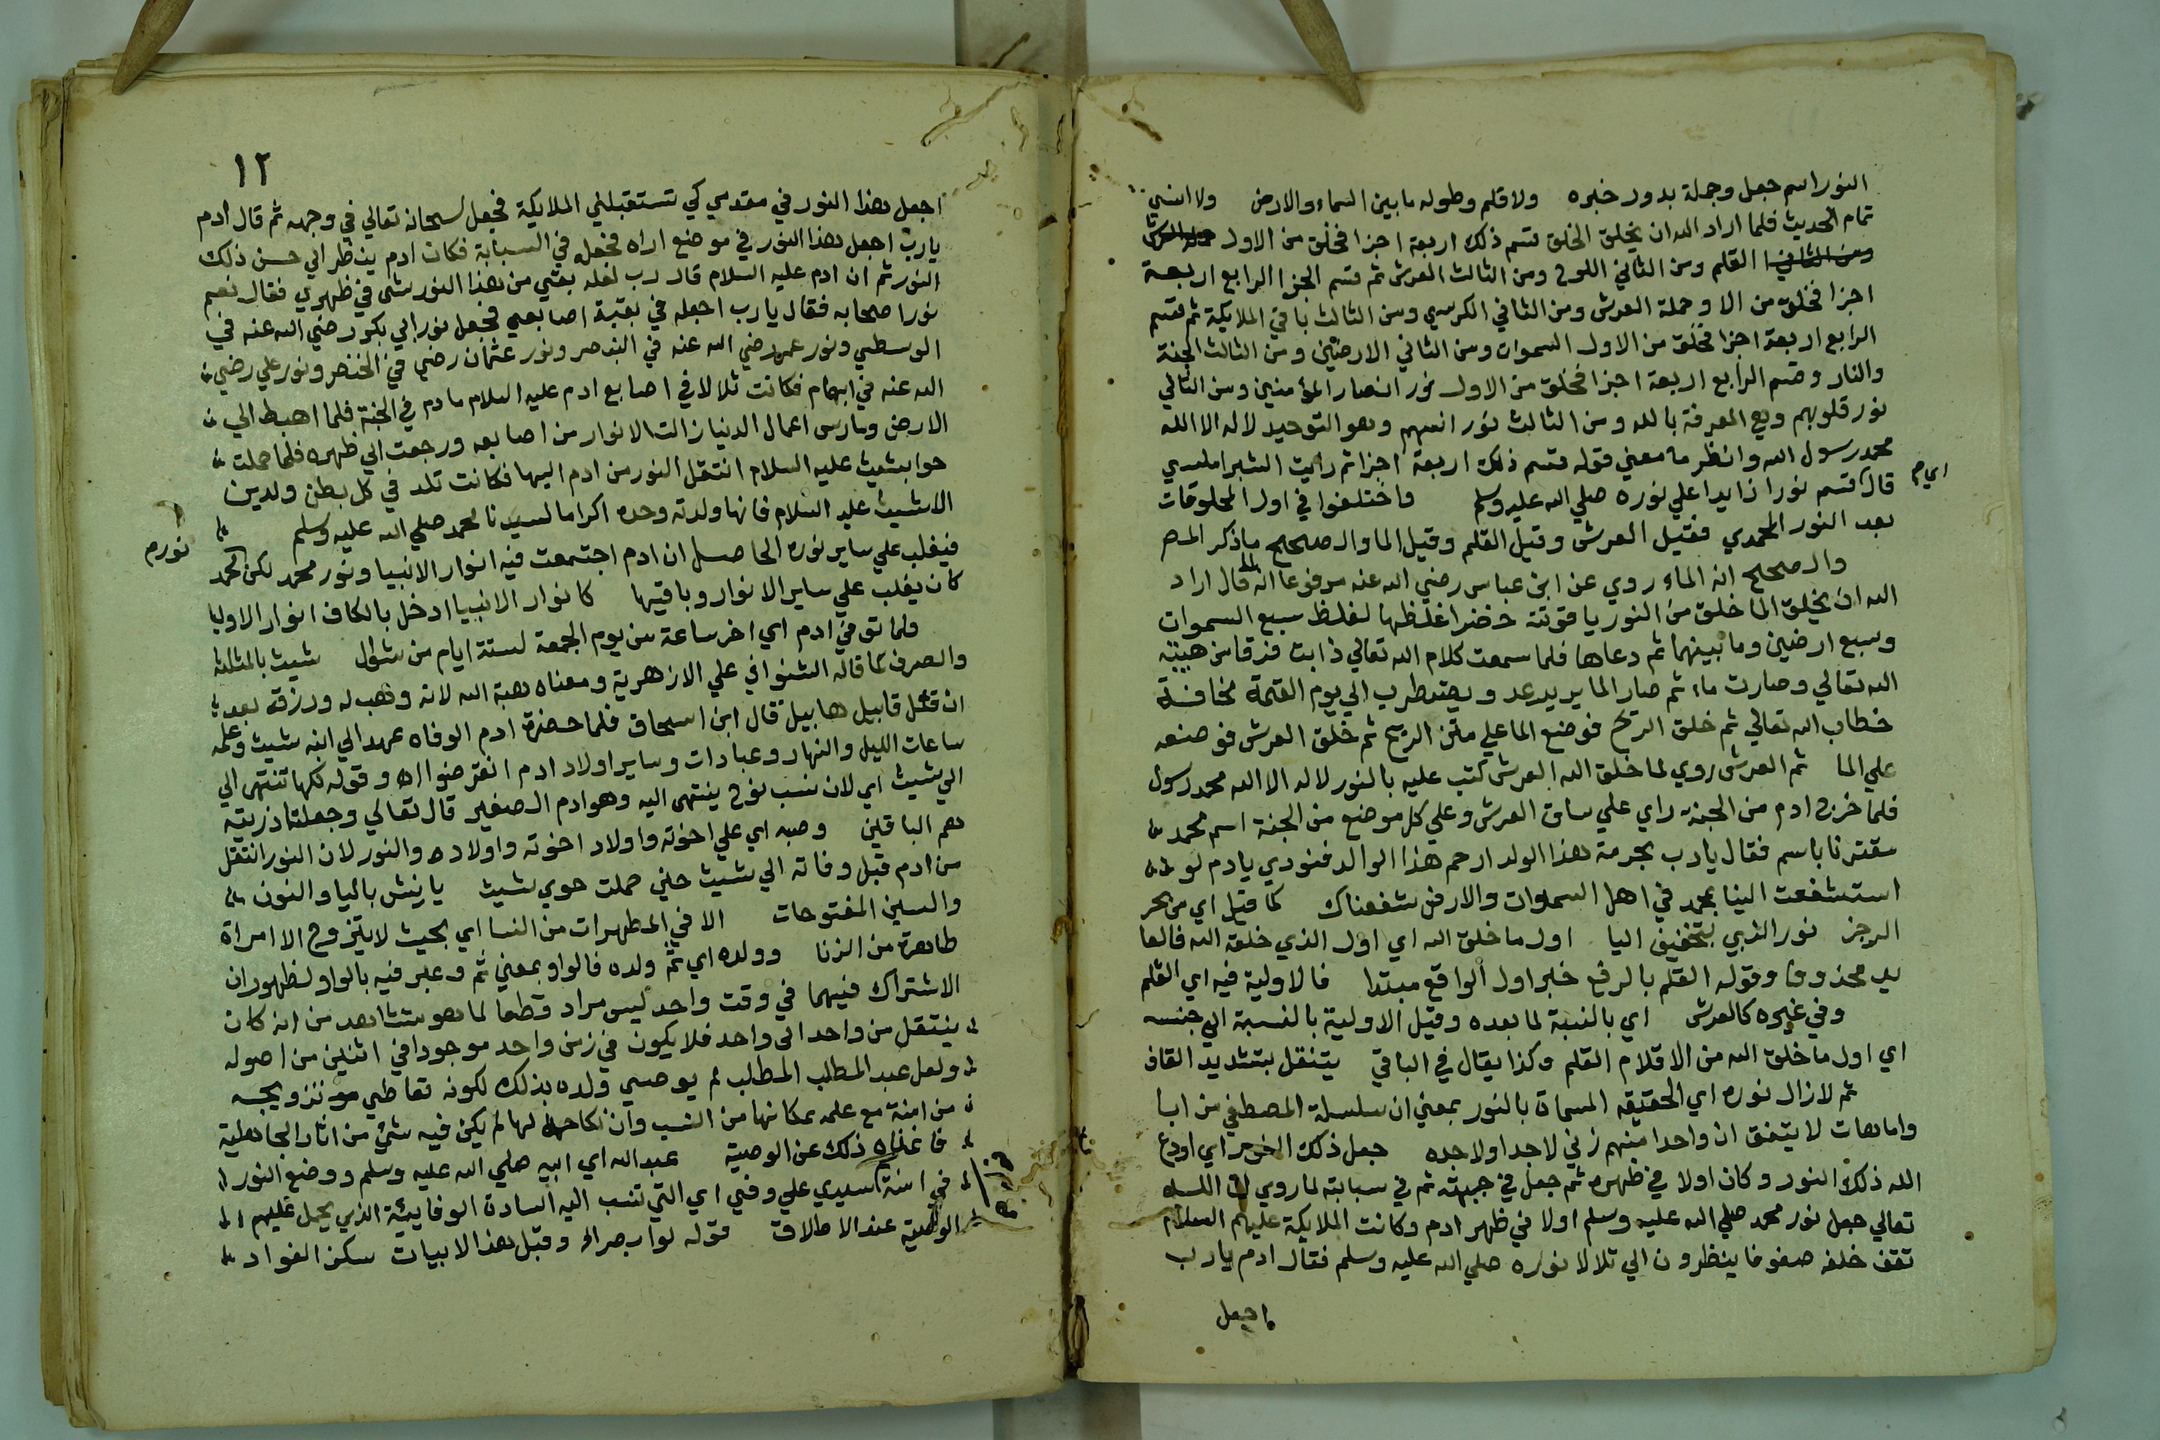 النور اسم جعل وجملة يدور خبره ولا قلم وطوله ما بين السماء والارض ولا انسي
تمام الحديث فلما اراد الله ان يخلق الخلق قسم ذلك اربعة اجزا فخلق من الاول
ومن الثاني القلم ومن الثاني اللوح ومن الثالث العرش ثم قسم الجزا الرابع اربعة
اجزا فخلق من الاو حملة العرش ومن الثاني الكرسي ومن الثالث باقي الملايكة ثم قسم
الرابع اربعة اجزا فخلق من الاول السموات ومن الثاني الارضين ومن الثالث الجنة
والنار وقسم الرابع اربعة اجزا فخلق من الاول نور ابصار المؤمنين ومن الثاني
نور قلوبهم وهي المعرفة بالله ومن الثالث نور انسهم وهو التوحيد لا اله الا الله
محمد رسول الله وانظر ما معني قوله قسم ذلك اربعة اجزا ثم رايت الشبراملسي
اي م
قال قسم نورا زايدا علي نوره صلي الله عليه وسلم واختلفوا في اول المخلوقات
بعد النور المحمدي فقيل العرش وقيل القلم وقيل الما والصحيح ما ذكر المص
والصحيح انه الماء روي عن ابن عباس رضي الله عنه مرفوعا انه لما قال اراد
الله ان يخلق الما خلق من النور ياقوتة خضرا غلظها لغلظ سبع السموات
وسبع ارضين وما بينهما ثم دعاها فلما سمعت كلام الله تعالي ذابت فرقا من هيبته
الله تعالي وصارت ماء ثم صار الما يريد يرعد ويضطرب الي يوم القيمة مخافة
خطاب الله تعالي ثم خلق الريح فوضع الما علي متن الريح ثم خلق العرش فوضعه
علي الما ثم العرش روي لما خلق الله العرش كتب عليه بالنور لا اله الا الله محمد رسول
فلما خرج ادم من الجنة راي علي ساق العرش وعلي كل موضع من الجنة اسم محمد
مقترنا باسم فقال يارب بحرمة هذا الولد ارحم هذا الوالد فنودي يادم لو
استشفعت الينا بمحمد في اهل السموات والارض شفعناك كما قيل اي من بحر
الرجز نور النبي بتخفيف اليا اول ما خلق الله اي اول الذي خلقه الله فالعا
يد محذوفا وقوله القلم بالرفع خبر اول الواقع مبتدا فالاولية فيه اي القلم
وفي غيره كالعرش اي بالنسبة لما بعده وقيل الاولية بالنسبة الي جنسه
اي اول ما خلق الله من الاقلام القلم وكذا يقال في الباقي يتنقل بتشديد القاف
ثم لازال نوره اي الحقيقة المسماة بالنور بمعني ان سلسلة المصطفي من ابا
وامهات لا يتفق ان واحدا منهم زني لا جدا ولا جده جعل ذلك اي اودع
الله ذلك النور وكان اولا في ظهره ثم جعل في جبهته ثم في سبابته لما روي ان الله
تعالي جعل نور محمد صلي الله عليه وسلم اولا في ظهر ادم وكانت الملايكة عليهم السلام
تقف خلفه صفوفا ينظرون الي تلالا نوره صلي الله عليه وسلم فقال ادم يارب
اجعل
١٢
اجعل هذا النور في مقدمي كي تستقبلني الملايكة فجعل سبحانه تعالي في وجهه ثم قال ادم
يارب اجعل هذا النور في موضع اراه فجعله في السبابة فكان ادم ينظر الي حسن ذلك
النور ثم ان ادم عليه السلام قال رب لعله بقي من هذا النور شي في ظهري فقال نعم
نور اصحابه فقال يارب اجعله في بقية اصابعي فجعل نور ابي بكر رضي الله عنه في
الوسطي ونور عمر رضي الله عنه في البنصر ونور عثمان رضي في الخنصر ونور علي رضي
الله عنه في ابهام فكانت تلالا في اصابع ادم عليه السلام ما دم في الجنة فلما اهبط الي
الارض ومارس اعمال الدنيا زالت الانوار من اصابعه ورجعت الي ظهره فلما حملت
حوا بشيث عليه السلام انتقل النور من ادم اليها فكانت تلد في كل بطن ولدين
الا شيث عليه السلام فانها ولدته وحده اكراما لسيدنا محمد صلي الله عليه وسلم
نوره م
فيغلب علي ساير نوره الحاصل ان ادم اجتمعت فيه انوار الانبيا ونور محمد لكن محمد
كان يغلب علي ساير الانوار وباقيها كانوار الانبيا ادخل بالكاف انوار الاوليا
فلما توفي ادم اي اخر ساعة من يوم الجمعة لستة ايام من شوال شيث بالمثلثة
والصرف كما قاله الشنواني علي الازهرية ومعناه هبة الله لانه وهب له ورزقه بعد
ان قتل قابيل هابيل قال ابن اسحاق فلما حضرة ادم الوفاه عهد الي ابنه شيث وعلمه
ساعات الليل والنهار وعبادات وساير اولاد ادم انقرضوا اه وقوله لكها تنتهي الي
الي شيث اي لان نسب نوح ينتهي اليه وهو ادم الصغير قال تعالي وجعلنا ذريته
هم الباقين وصيه اي علي اخوته واولاد اخوته واولاده والنور لان النور انتقل
من ادم قبل وفاته الي شيث حين حملت حوي بشيث يانش باليا والنون
والسين المفتوحات الا في المطهرات من النسا اي بحيث لا يتزوج الا امراة
طاهرة من الزنا وولده اي ثم ولده فالواو بمعني ثم وعبر فيه بالواو لظهور ان
الاشتراك فيهما في وقت واحد ليس مراد قطعا لما هو مشاهد من انه كان
ينتقل من واحد الي واحد فلا يكون في زمن واحد موجودا في اثنين من اصوله
ولعل عبد المطلب المطلب لم يوصي ولده بذلك لكونه تعاطي تزويجه
من امنة مع علمه بمكانها من النسب وان نكاحها لها لم يكن فيه شئ من اثار الجاهلية
فاغناه ذلك عن الوصية عبد الله اي ابيه صلي الله عليه وسلم ووضع النور
في امنة سيدي علي وفي اي التي تنسب اليه السادة الوفايئة الذي يحمل عليهم
الوصية عند الاطلاق قوله لو ابصر الخ وقبل هذا الابيات سكن الفواد